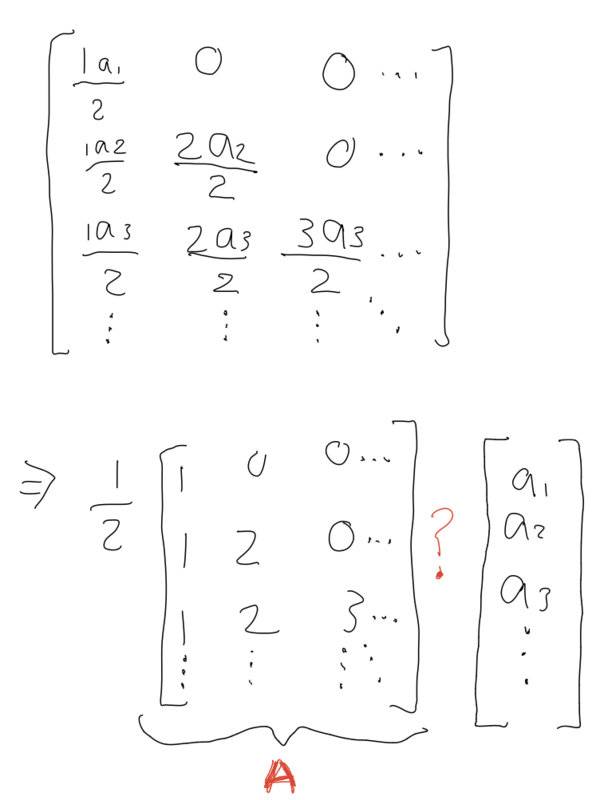 1a₁/2 0 0 ...
1a₂/2 2a₂/2 0 ...
1a₃/2 2a₃/2 3a₃/2 ...
⋮ ⋮ ⋮ ⋱
⇒ 1/2 [1 0 0 ...
1 2 0 ...
1 2 3 ...
⋮ ⋮ ⋮ ⋱] ? [a₁
a₂
a₃
⋮]
A